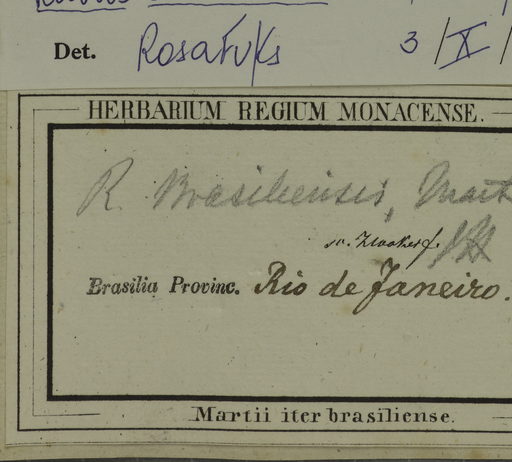 Det. Rosa Fuks 3/X/
HERBARIUM REGIUM MONACENSE.
R. Brasiliensis, Mart
Brasilia Provinc. Rio de Janeiro.
Martii iter brasiliense.